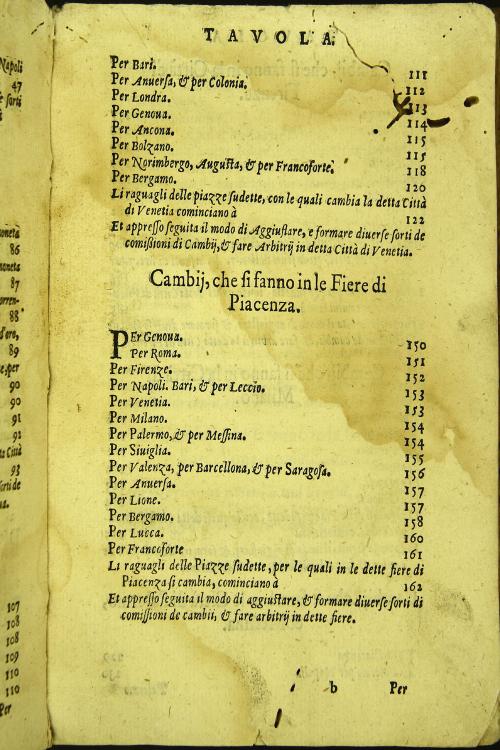 Napoli
47
e sorti
TAVOLA.
Per Bari. 111
Per Anuersa, & per Colonia. 112
Per Londra. 113
Per Genoua. 114
Per Ancona. 115
Per Bolzano. 115
Per Norimbergo, Augusta, & per Francoforte. 118
Per Bergamo. 120
Li raguagli delle piazze sudette, con le quali cambia la detta Città
di Venetia cominciano à 122
Et appresso seguita il modo di Aggiustare, e formare diuerse sorti de
comissioni di Cambij, & fare Arbitrij in detta Città di Venetia.
Cambij, che si fanno in le Fiere di
Piacenza.
PEr Genoua. 150
Per Roma. 151
Per Firenze. 152
Per Napoli. Bari, & per Leccio. 153
Per Venetia. 153
Per Milano. 154
Per Palermo, & per Messina. 154
Per Siuiglia. 155
Per Valenza, per Barcellona, & per Saragosa. 156
Per Anuersa. 157
Per Lione. 157
Per Bergamo. 158
Per Lucca. 160
Per Francoforte 161
Li raguagli delle Piazze sudette, per le quali in le dette fiere di
Piacenza si cambia, cominciano à 162
Et appresso seguita il modo di aggiustare, & formare diuerse sorti di
comissioni de cambii, & fare arbitrij in dette fiere.
b Per
86
87
88
89
90
90
91
92
93
107
108
108
109
110
110
Per